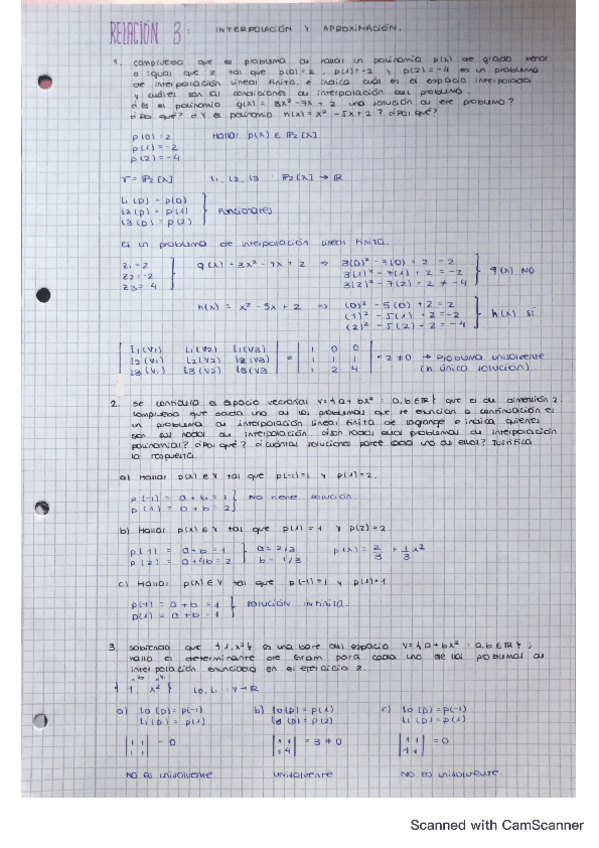 RELACIÓN 3: INTERPOLACIÓN Y APROXIMACIÓN.
1. comprueba que el problema de hallar un polinomio p(x) de grado menor
o igual que 2 tal que p(0)=2, p(1)=-2 y p(2)=-4 es un problema
de interpolación lineal finita, e indica cuál es el espacio interpolador
y cuáles son las condiciones de interpolación del problema.
¿Es el polinomio q(x) = 3x² - 7x + 2 una solución de ese problema?
¿Por qué? ¿Y el polinomio h(x) = x² - 5x + 2? ¿Por qué?
p(0)=2 Hallar p(x) ∈ P₂[x]
p(1)=-2
p(2)=-4
V = P₂[x] L1, L2, L3 : P₂[x] → R
L1(p) = p(0)
L2(p) = p(1) } Funcionales
L3(p) = p(2)
Es un problema de interpolación lineal finita.
z1=2 q(x) = 3x² - 7x + 2 ⇒ 3(0)² - 7(0) + 2 = 2
z2=-2 3(1)² - 7(1) + 2 = -2 } q(x) NO
z3=-4 3(2)² - 7(2) + 2 ≠ -4
h(x) = x² - 5x + 2 ⇒ (0)² - 5(0) + 2 = 2
(1)² - 5(1) + 2 = -2 } h(x) SÍ
(2)² - 5(2) + 2 = -4
L1(v1) L1(v2) L1(v3) 1 0 0
L2(v1) L2(v2) L2(v3) = 1 1 1 = 2 ≠ 0 → Problema unisolvente
L3(v1) L3(v2) L3(v3) 1 2 4 (h única solución)
2. se considera el espacio vectorial V={a+bx² : a,b∈R} que es de dimensión 2.
Comprueba que cada uno de los problemas que se enuncian a continuación es
un problema de interpolación lineal finita de lagrange e indica quiénes
son sus nodos de interpolación. ¿Son todos ellos problemas de interpolación
polinomial? ¿Por qué? ¿cuántas soluciones posee cada uno de ellos? Justifica
la respuesta.
a) Hallar p(x) ∈ V tal que p(-1)=1 y p(1)=2.
p(-1) = a + b = 1 } No tiene solución.
p(1) = a + b = 2
b) Hallar p(x) ∈ V tal que p(1)=1 y p(2)=2
p(1) = a+b = 1 } a = 2/3 p(x) = 2/3 + 1/3 x²
p(2) = a+4b = 2 b = 1/3
c) Hallar p(x) ∈ V tal que p(-1)=1 y p(1)=1
p(-1) = a + b = 1 } solución infinita.
p(1) = a + b = 1
3. sabiendo que {1, x²} es una base del espacio V={a+bx² : a,b∈R},
halla el determinante de Gram para cada uno de los problemas de
interpolación enunciados en el ejercicio 2.
{1, x²} L0, L1 : V → R
a) L0(p)=p(-1) b) L0(p) = p(1) c) L0(p) = p(-1)
L1(p) = p(1) L1(p) = p(2) L1(p) = p(1)
|1 1| = 0 |1 1| = 3 ≠ 0 |1 1| = 0
|1 1| |1 4| |1 1|
NO ES unisolvente unisolvente NO ES unisolvente
Scanned with CamScanner